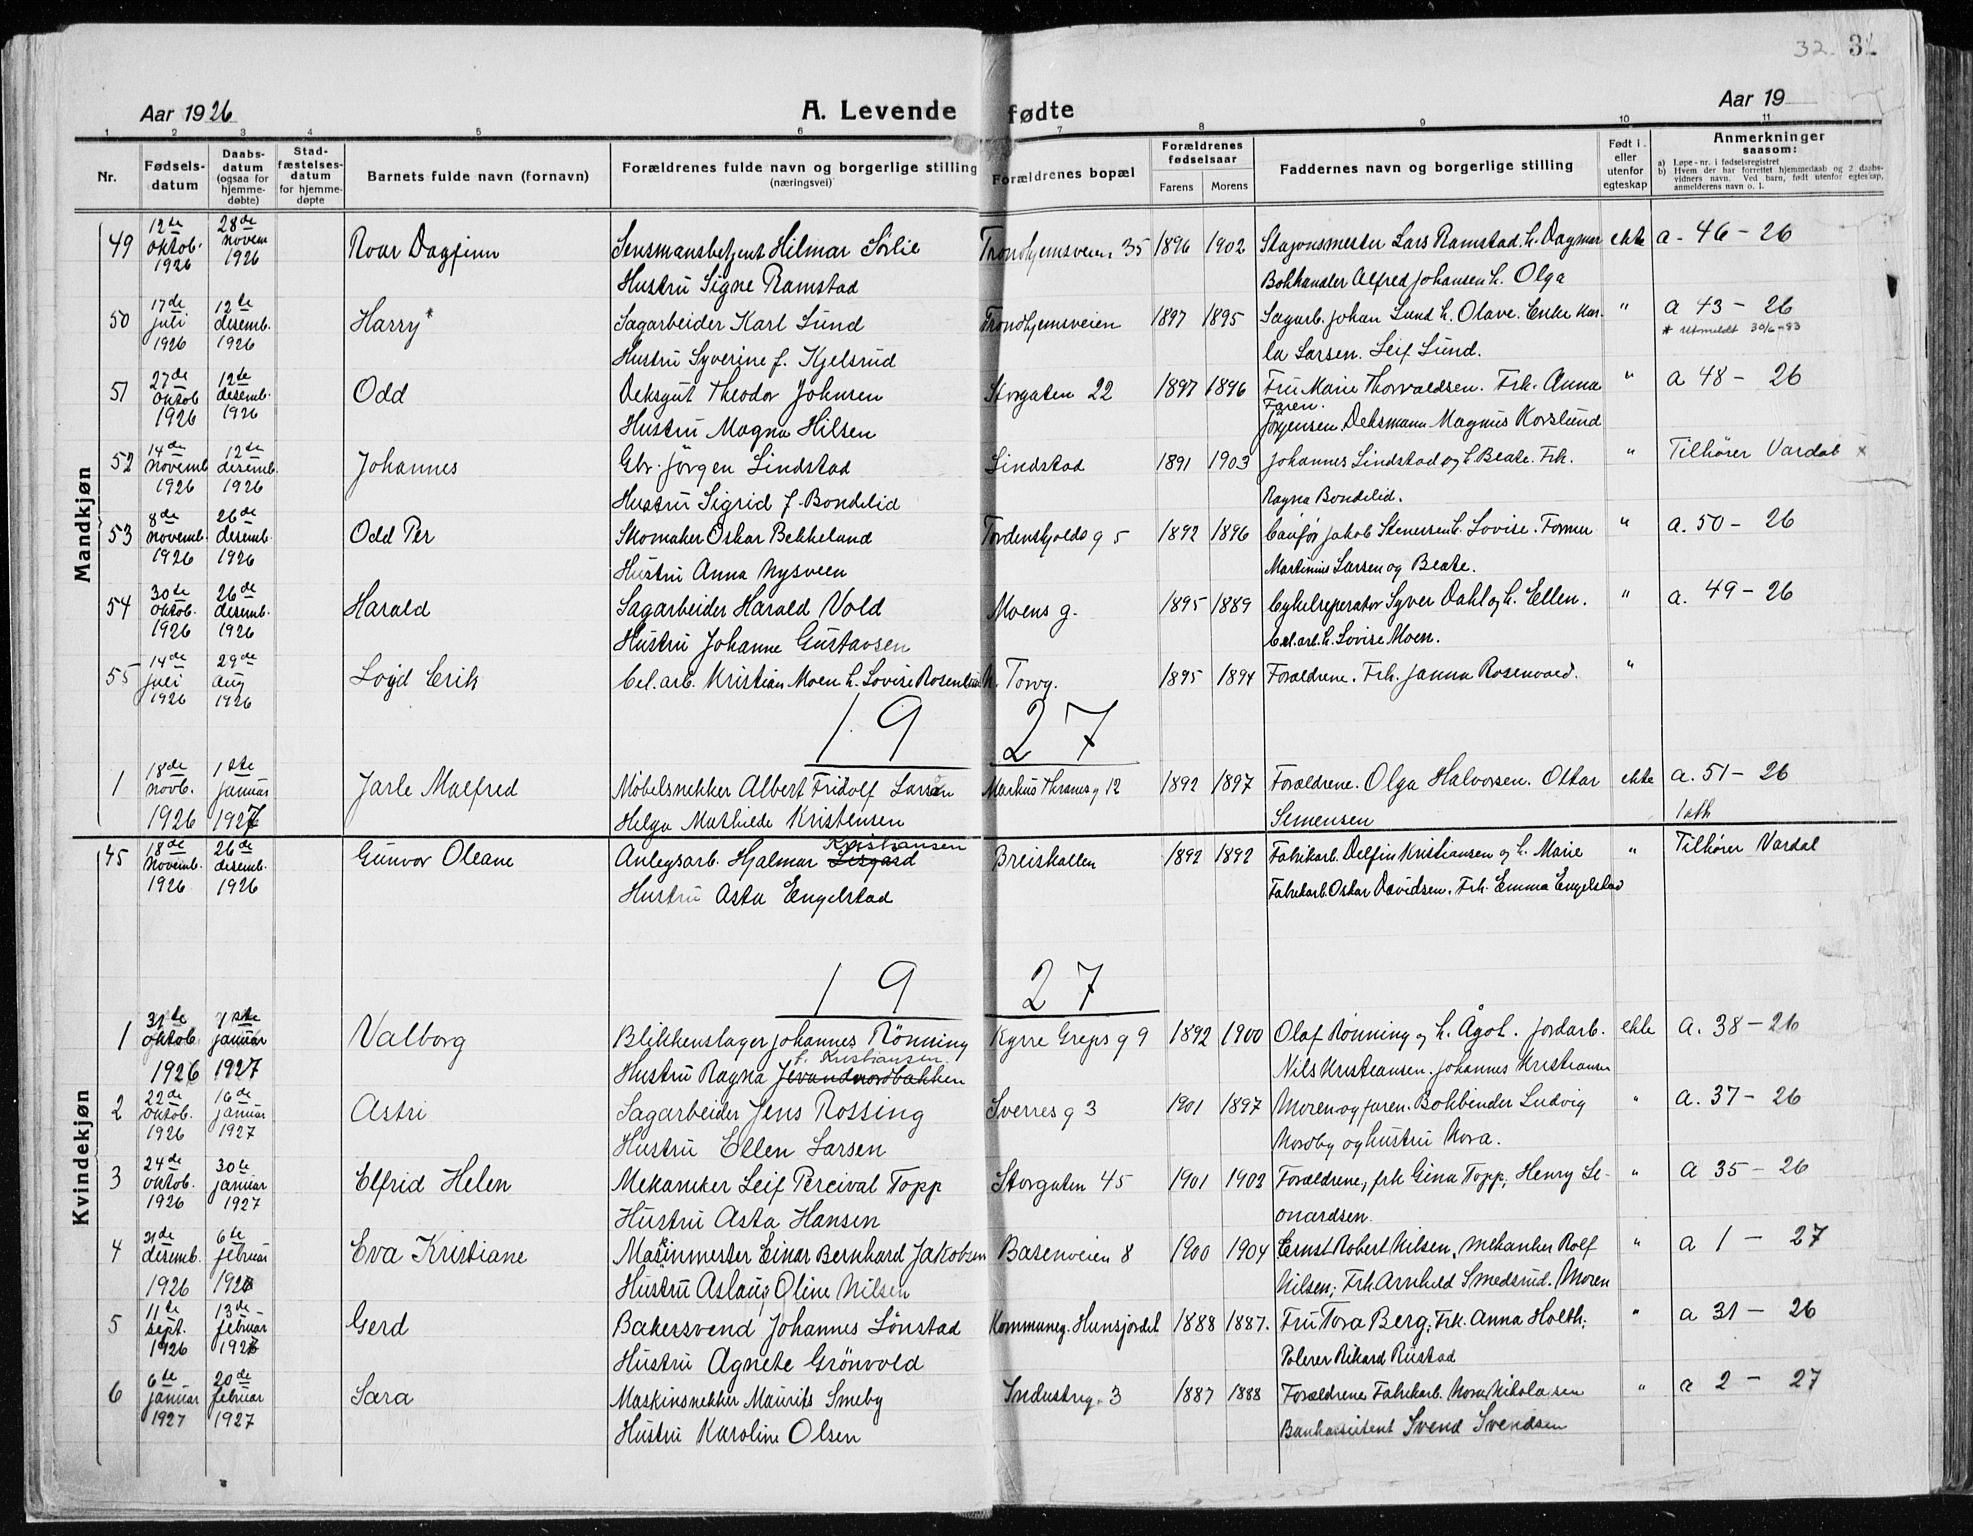 32. 31
Aar 1926
A. Levende fødte
Aar 19
1 2 3 4 5 6 7 8 9 10 11
Nr.
Fødsels-
datum
Daabs-
datum
(ogsaa for
hjemme-
døbte)
Stad-
fæstelses-
datum
for hjemme-
døpte
Barnets fulde navn (fornavn)
Forældrenes fulde navn og borgerlige stilling
(næringsvei)
Forældrenes bopæl
Forældrenes
fødselsaar
Farens Morens
Faddernes navn og borgerlige stilling
Født i
eller
utenfor
egteskap
Anmerkninger
saasom:
a) Løpe-nr. i fødselsregistret
b) Hvem der har forrettet hjemmedaab og 2 daabs-
vidners navn. Ved barn, født utenfor egteskap,
anmelderens navn o. l.
Mandkjøn
49 12te oktob. 1926 28de novem 1926 Roar Dagfinn Lensmansbetjent Hilmar Sörlie Trondhjemsveien 35 1896 1902 Stasjonsmester Lars Ramstad. h. Dagmar ekte a - 46 - 26
Hustru Signe Ramstad Bokhandler Alfred Johansen h. Olga
50 17de juli 1926 12te desemb. 1926 Harry* Sagarbeider Karl Lund Trondhjemsveien 1897 1895 Sagarb. Johan Lund h. Olave. Enke Kar- " a 43 - 26
* Utmeldt 30/6-83
Hustru Syverine f. Kjelsrud la Larsen. Leif Lund.
51 27de oktob 1926 12te desemb. 1926 Odd Deksgut Theodor Johnsen Storgaten 22 1897 1896 Fru Marie Thorvaldsen. Frk. Anna " a 48 - 26
Faren.
Hustru Magna Hilsen Jörgensen. Deksmann Magnus Korslund
52 14de novemb 1926 12te desemb. 1926 Johannes Gbr. Jörgen Lindstad Lindstad 1891 1903 Johannes Lindstad og h Beate. Frk. " Tilhører Vardal x
Hustru Sigrid f. Bondelid Ragna Bondelid.
53 8de novemb. 1926 26de desemb. 1926 Odd Per Skomaker Oskar Bekkelund Tordenskjolds g 5 1892 1896 Jakob Stenersen h. Lovise. Former " a. 50 - 26
Hustru Anna Nysveen Martinius Larsen og Beate.
54 30te oktob. 1926 26de desemb. 1926 Harald Sagarbeider Harald Vold Moens g. 1895 1889 Cykelreperatør Syver Dahl og h. Ellen. " a. 49 - 26
Hustru Johanne Gustavsen Cel. arb. h. Lovise Moen.
55 14de juli 1926 29de aug 1926 Loyd Erik Cel. arb. Kristian Moen h. Lovise Torvg. 1895 1894 Foreldrene. Frk. Janna Rosenvold. "
1927
1 18de novb. 1926 1ste januar 1927 Jarle Malfred Møbelsnekker Albert Fridolf Larsen Markus Thranes g 12 1892 1897 Foreldrene. Olga Halvorsen. Ottar ekte a. 51 - 26
Helga Mathilde Kristensen Simensen
Kvindekjøn
Kristiansen
45 18de novemb. 1926 26de desemb. 1926 Gunvor Oleane Anlegsarb. Hjalmar Lisgard Breiskallen 1892 1892 Fabrikarb. Delfin Kristiansen og h. Marie " Tilhører Vardal
Hustru Asta Engelstad Fabrikarb. Oskar Davidsen. Frk. Emma Engelstad
1927
1 31te oktob. 1926 1ste januar 1927 Valborg Blikkenslager Johannes Rönning Kyrre Greps g 9 1892 1900 Olaf Rønning og h. Ågot. Jordarb. ekte a. 38 - 26
f. Kristiansen
Hustru Ragna Nils Kristiansen. Johannes Kristiansen
2 22de oktob. 1926 16de januar 1927 Astri Sagarbeider Jens Rossing Sverres g 3 1901 1897 Moren og faren. Bokbinder Ludvig " a. 37 - 26
Hustru Ellen Larsen Nordby og hustru Nora.
3 24de oktob. 1926 30te januar 1927 Elfrid Helen Mekaniker Leif Percival Topp Storgaten 45 1901 1902 Foreldrene, frk Gina Topp, Henry Le- " a 35 - 26
Hustru Asta Hansen onardsen.
4 31de desemb. 1926 6te februar 1927 Eva Kristiane Maskinmester Einar Bernhard Jakobsen Basenveien 8 1900 1904 Ernst Robert Nilsen, Mekaniker Rolf " a 1 - 27
Hustru Aslaug Oline Nilsen Nilsen; Frk Arnhild Smedsrud. Moren
5 11te sept. 1926 13de februar 1927 Gerd Bakersvend Johannes Lönstad Kommuneg. Hunsjordet 1888 1887. Fru Tora Berg; Frk. Anna Holth; " a 31 - 26
Hustru Agnete Grönvold Polerer Rikard Rustad
6 6te januar 1927 20de februar 1927 Sara Maskinsnekker Mauritz Smeby Industrig. 3 1887 1888 Foreldrene Fabrikarb. Nora Nikolaisen " a 2 - 27
Hustru Karoline Olsen Svend Svendsen